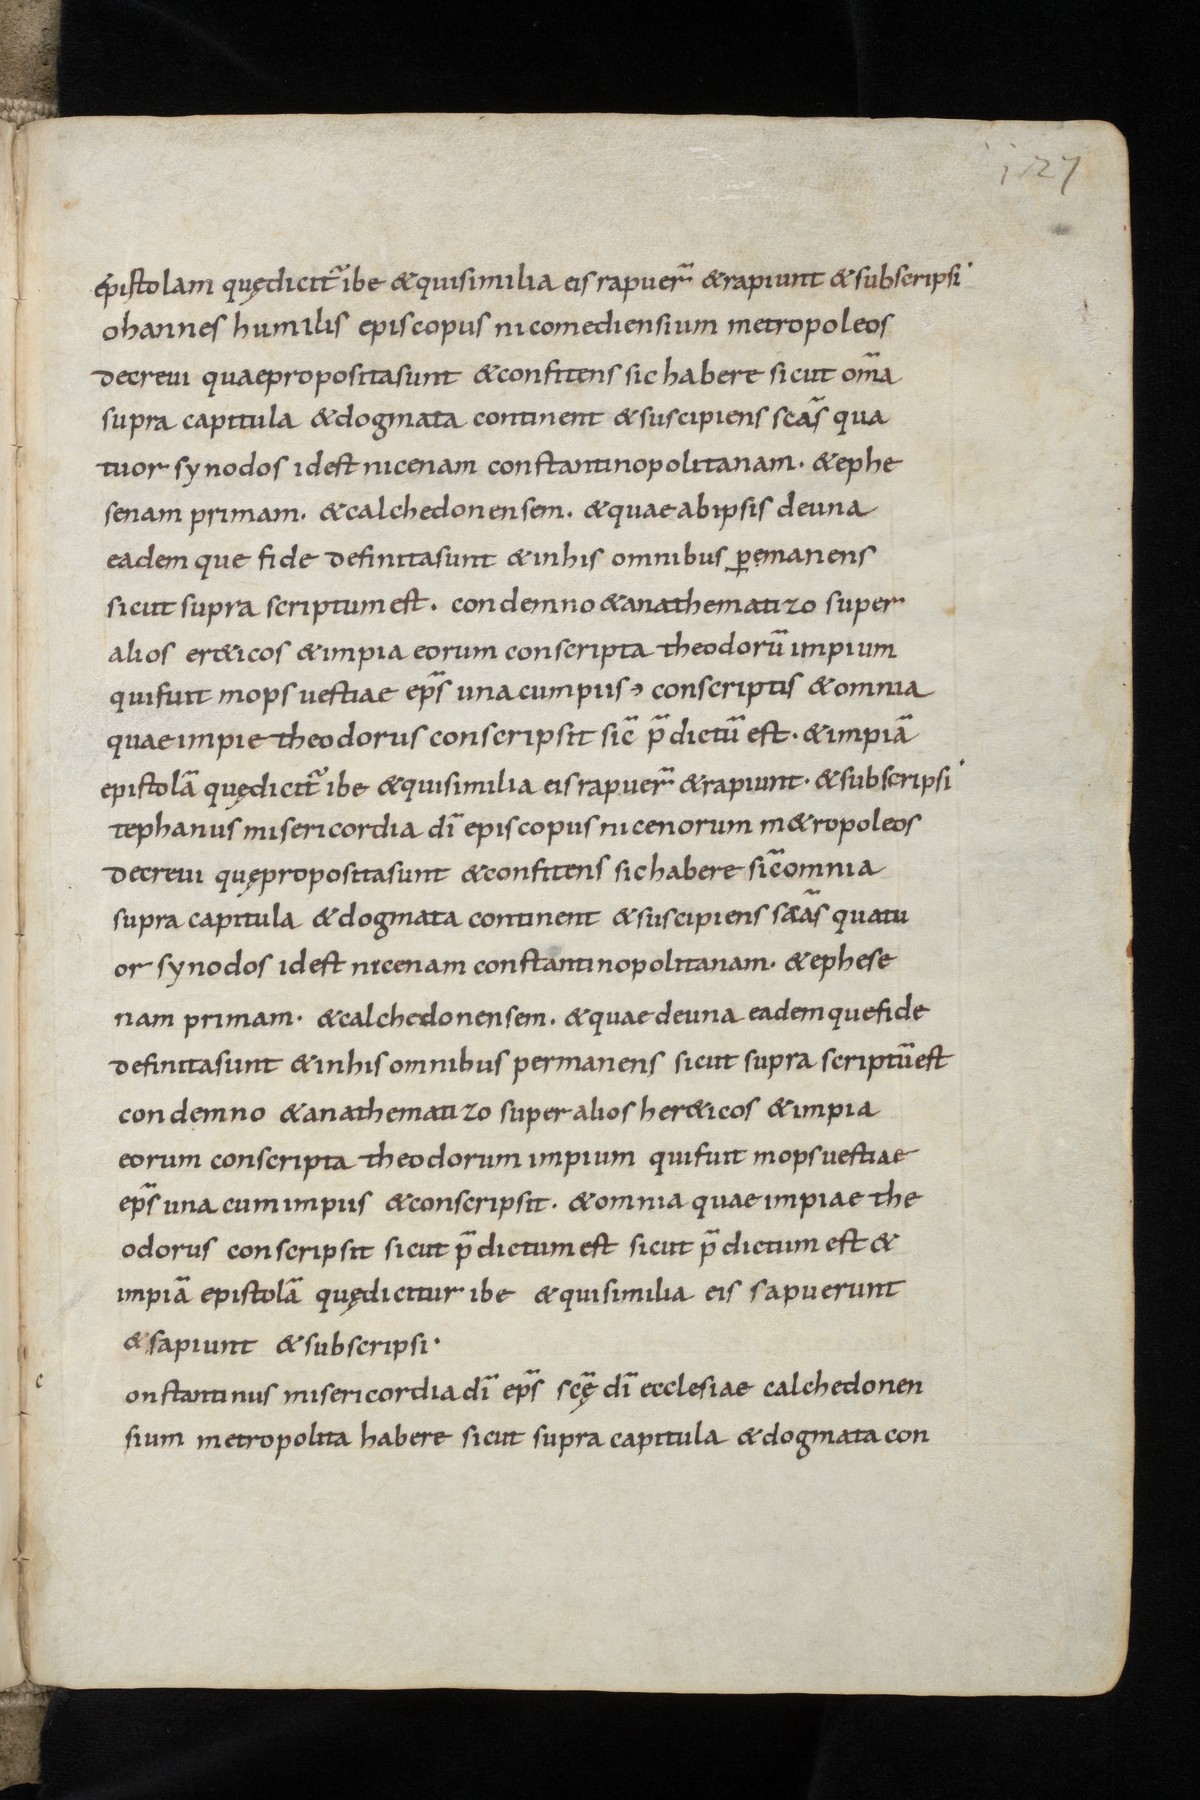 127
epistolam quędicit̃ ibe &quisimilia eis rapuer̃ &rapiunt &subscripsi·
ohannes humilis episcopus nicomediensium metropoleos
decreui quaepropositasunt &confitens sic habere sicut om̃a
supra capitula &dogmata continent &suscipiens scãs qua
tuor synodos idest nicenam constantinopolitanam· &ephe
senam primam· &calchedonensem· &quae abipsis deuna
eadem que fide definitasunt &inhis omnibus ꝑemanens
sicut supra scriptum est· condemno &anathematizo super
alios er&icos &impia eorum conscripta theodorũ impium
quifuit mopsuestiae ep̃s una cumpiis conscriptis &omnia
quae impie theodorus conscripsit sic̃ p̃dictũ est· &impiã
epistolã quędicit̃ ibe &quisimilia eis rapuer̃ &rapiunt· &subscripsi·
tephanus misericordia dĩ episcopus nicenorum m&ropoleos
decreui quępropositasunt &confitens sic habere sic̃omnia
supra capitula &dogmata continent &suscipiens scãs quatu
or synodos idest nicenam constantinopolitanam· &ephese
nam primam· &calchedonensem· &quae deuna eademquefide
definitasunt &inhis omnibus permanens sicut supra scriptũest
condemno &anathematizo super alios her&icos &impia
eorum conscripta theodorum impium quifuit mopsuestiae
ep̃s una cum impiis &conscripsit· &omnia quae impiae the
odorus conscripsit sicut p̃dictum est sicut p̃dictum est &
impiã epistolã quędicitur ibe &quisimilia eis sapuerunt
&sapiunt &subscripsi·
c onstantinus misericordia dĩ ep̃s scę̃ dĩ ecclesiae calchedonen
sium metropolita habere sicut supra capitula &dogmata con